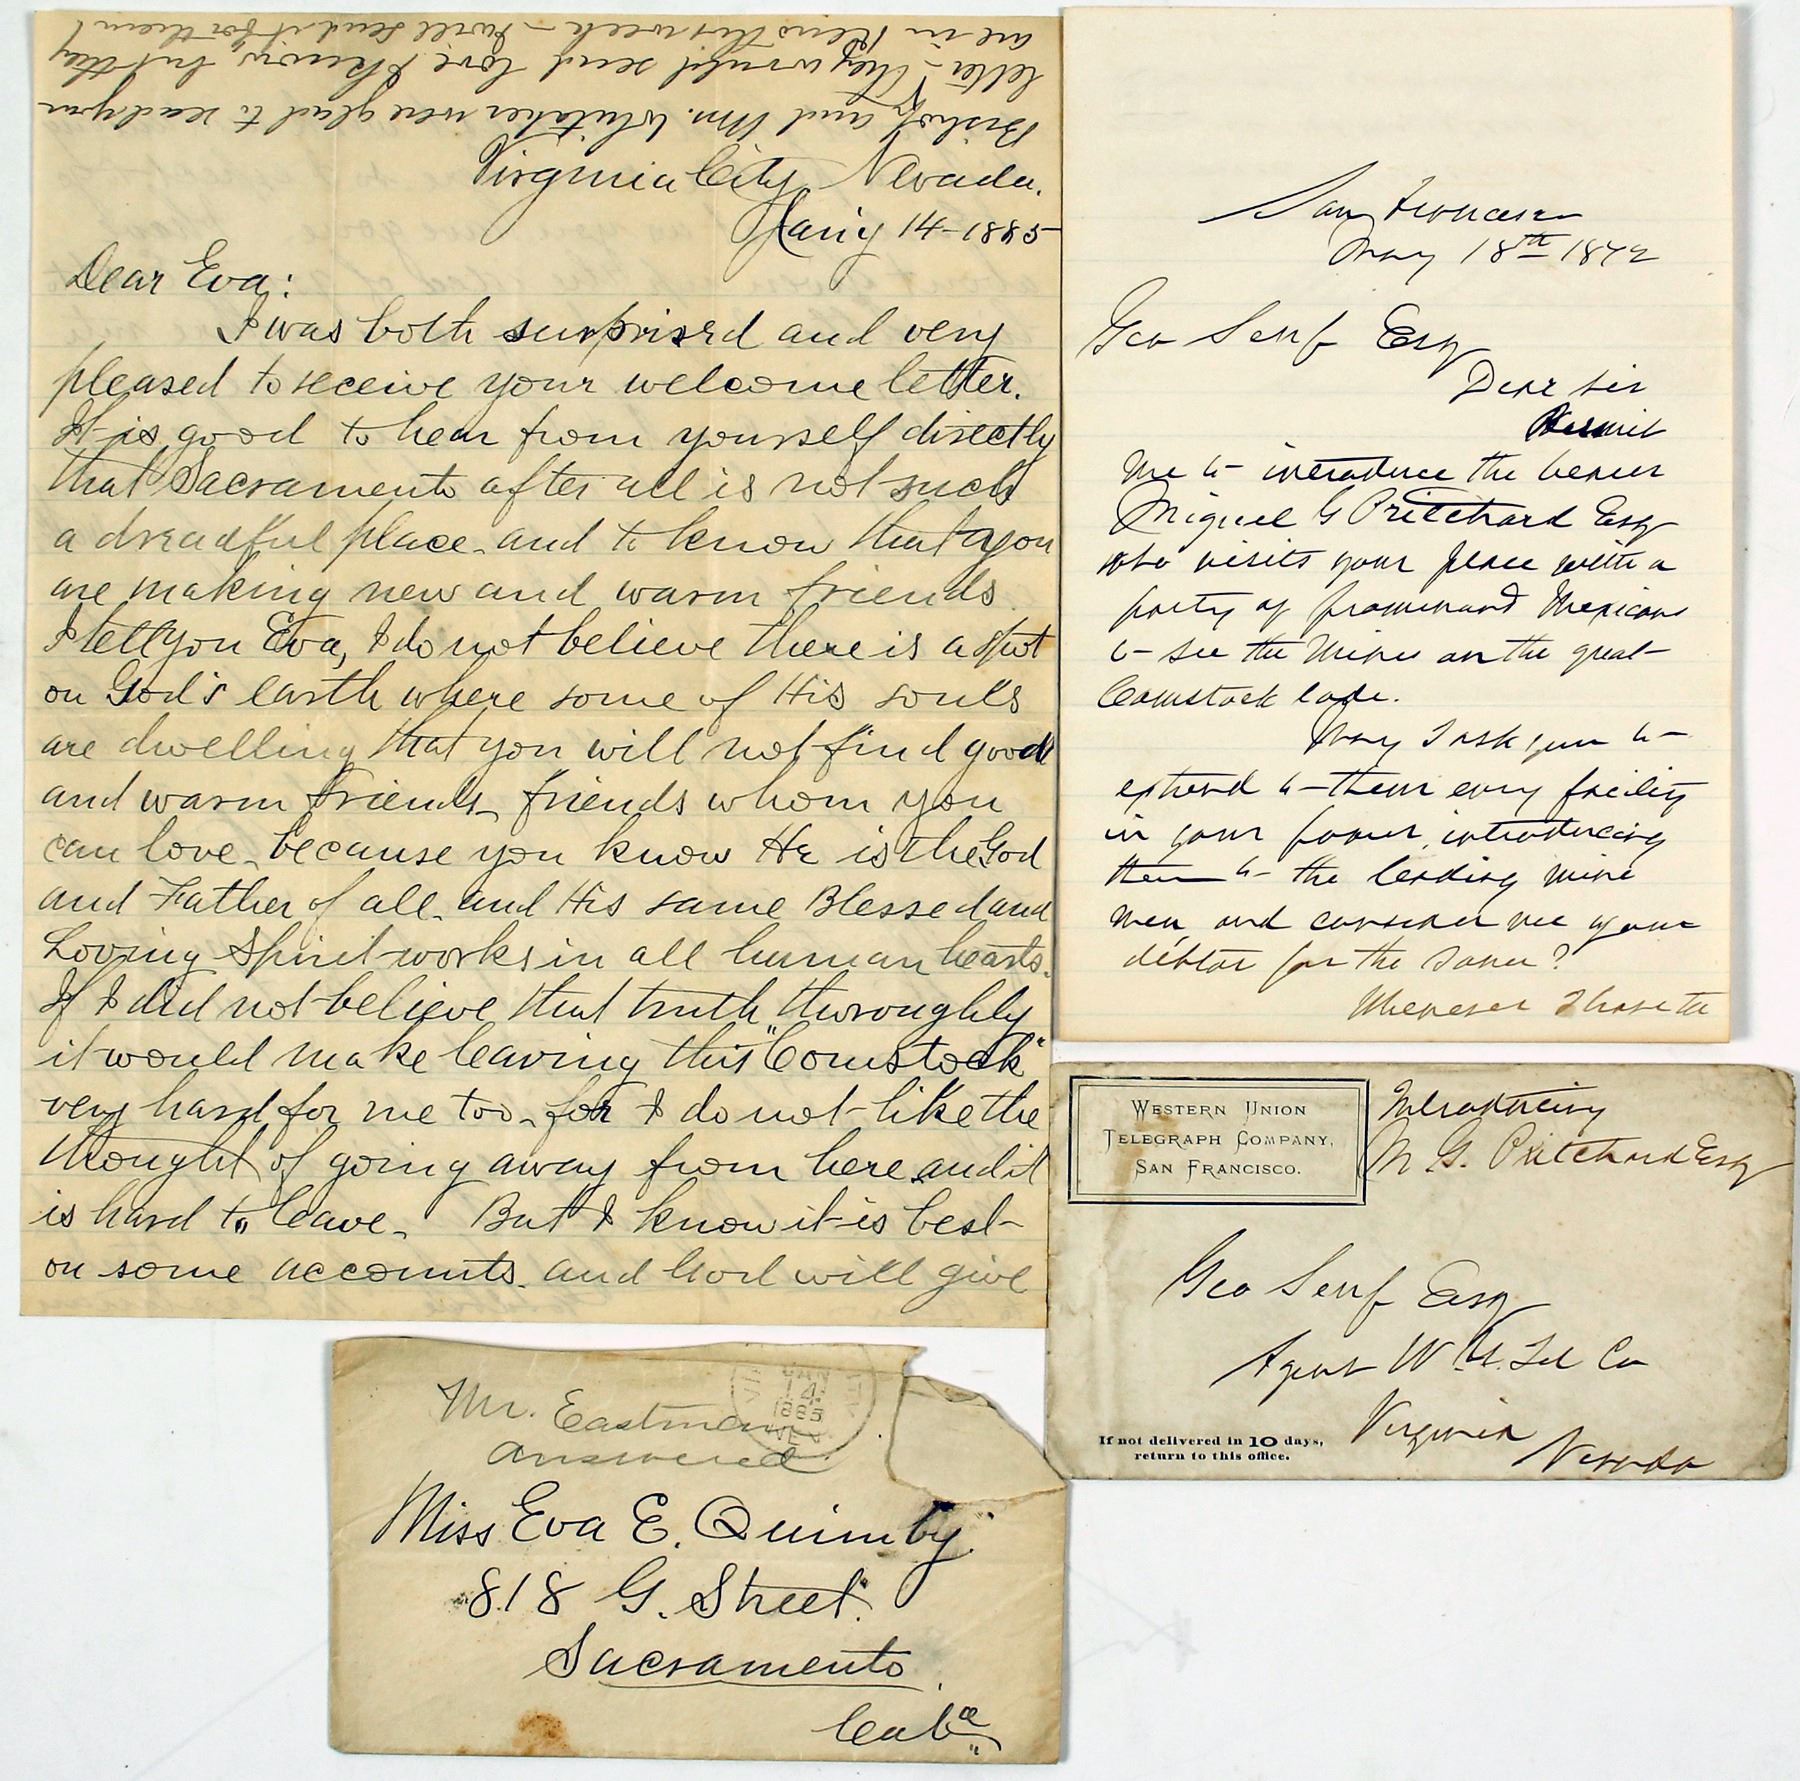 Bishop and Mrs. Whitaker were glad to read your
letter - They would send love I know, but they
are in Reno this week - will send it for them
Virginia City Nevada.
Jan'y 14 - 1885
Dear Eva:
I was both surprised and very
pleased to receive your welcome letter.
It is good to hear from yourself directly
that Sacramento after all is not such
a dreadful place - and to know that you
are making new and warm friends
I tell you Eva, I do not believe there is a spot
on God's earth where some of His souls
are dwelling that you will not find good
and warm friends - friends whom you
can love - because you know He is the God
and Father of all - and His same Blessed and
Loving Spirit works in all human hearts.
If I did not believe that truth thoroughly
it would make leaving this "Comstock"
very hard for me too - for I do not like the
thought of going away from here and it
is hard to leave - But I know it is best
on some accounts - and God will give
San Francisco
May 18th 1872
Geo Senf Esq
Dear Sir
Permit
me to introduce the bearer
Miguel G Pritchard Esq
who visits your place with a
party of prominant Mexicans
to see the Mines on the great
Comstock lode.
May I ask you to
extend to them every facility
in your power, introducing
them to the leading mine
men, and consider me your
debtor for the same?
Whenever I have the
Western Union
Telegraph Company,
San Francisco.
Introducing
M G. Pritchard Esq
Geo Senf Esq
Agent W. U. Tel Co
Virginia
Nevada
If not delivered in 10 days,
return to this office.
JAN
14
1885
NEV
Mr. Eastman
answered
Miss Eva E. Quimby
818 G. Street.
Sacramento
Cala